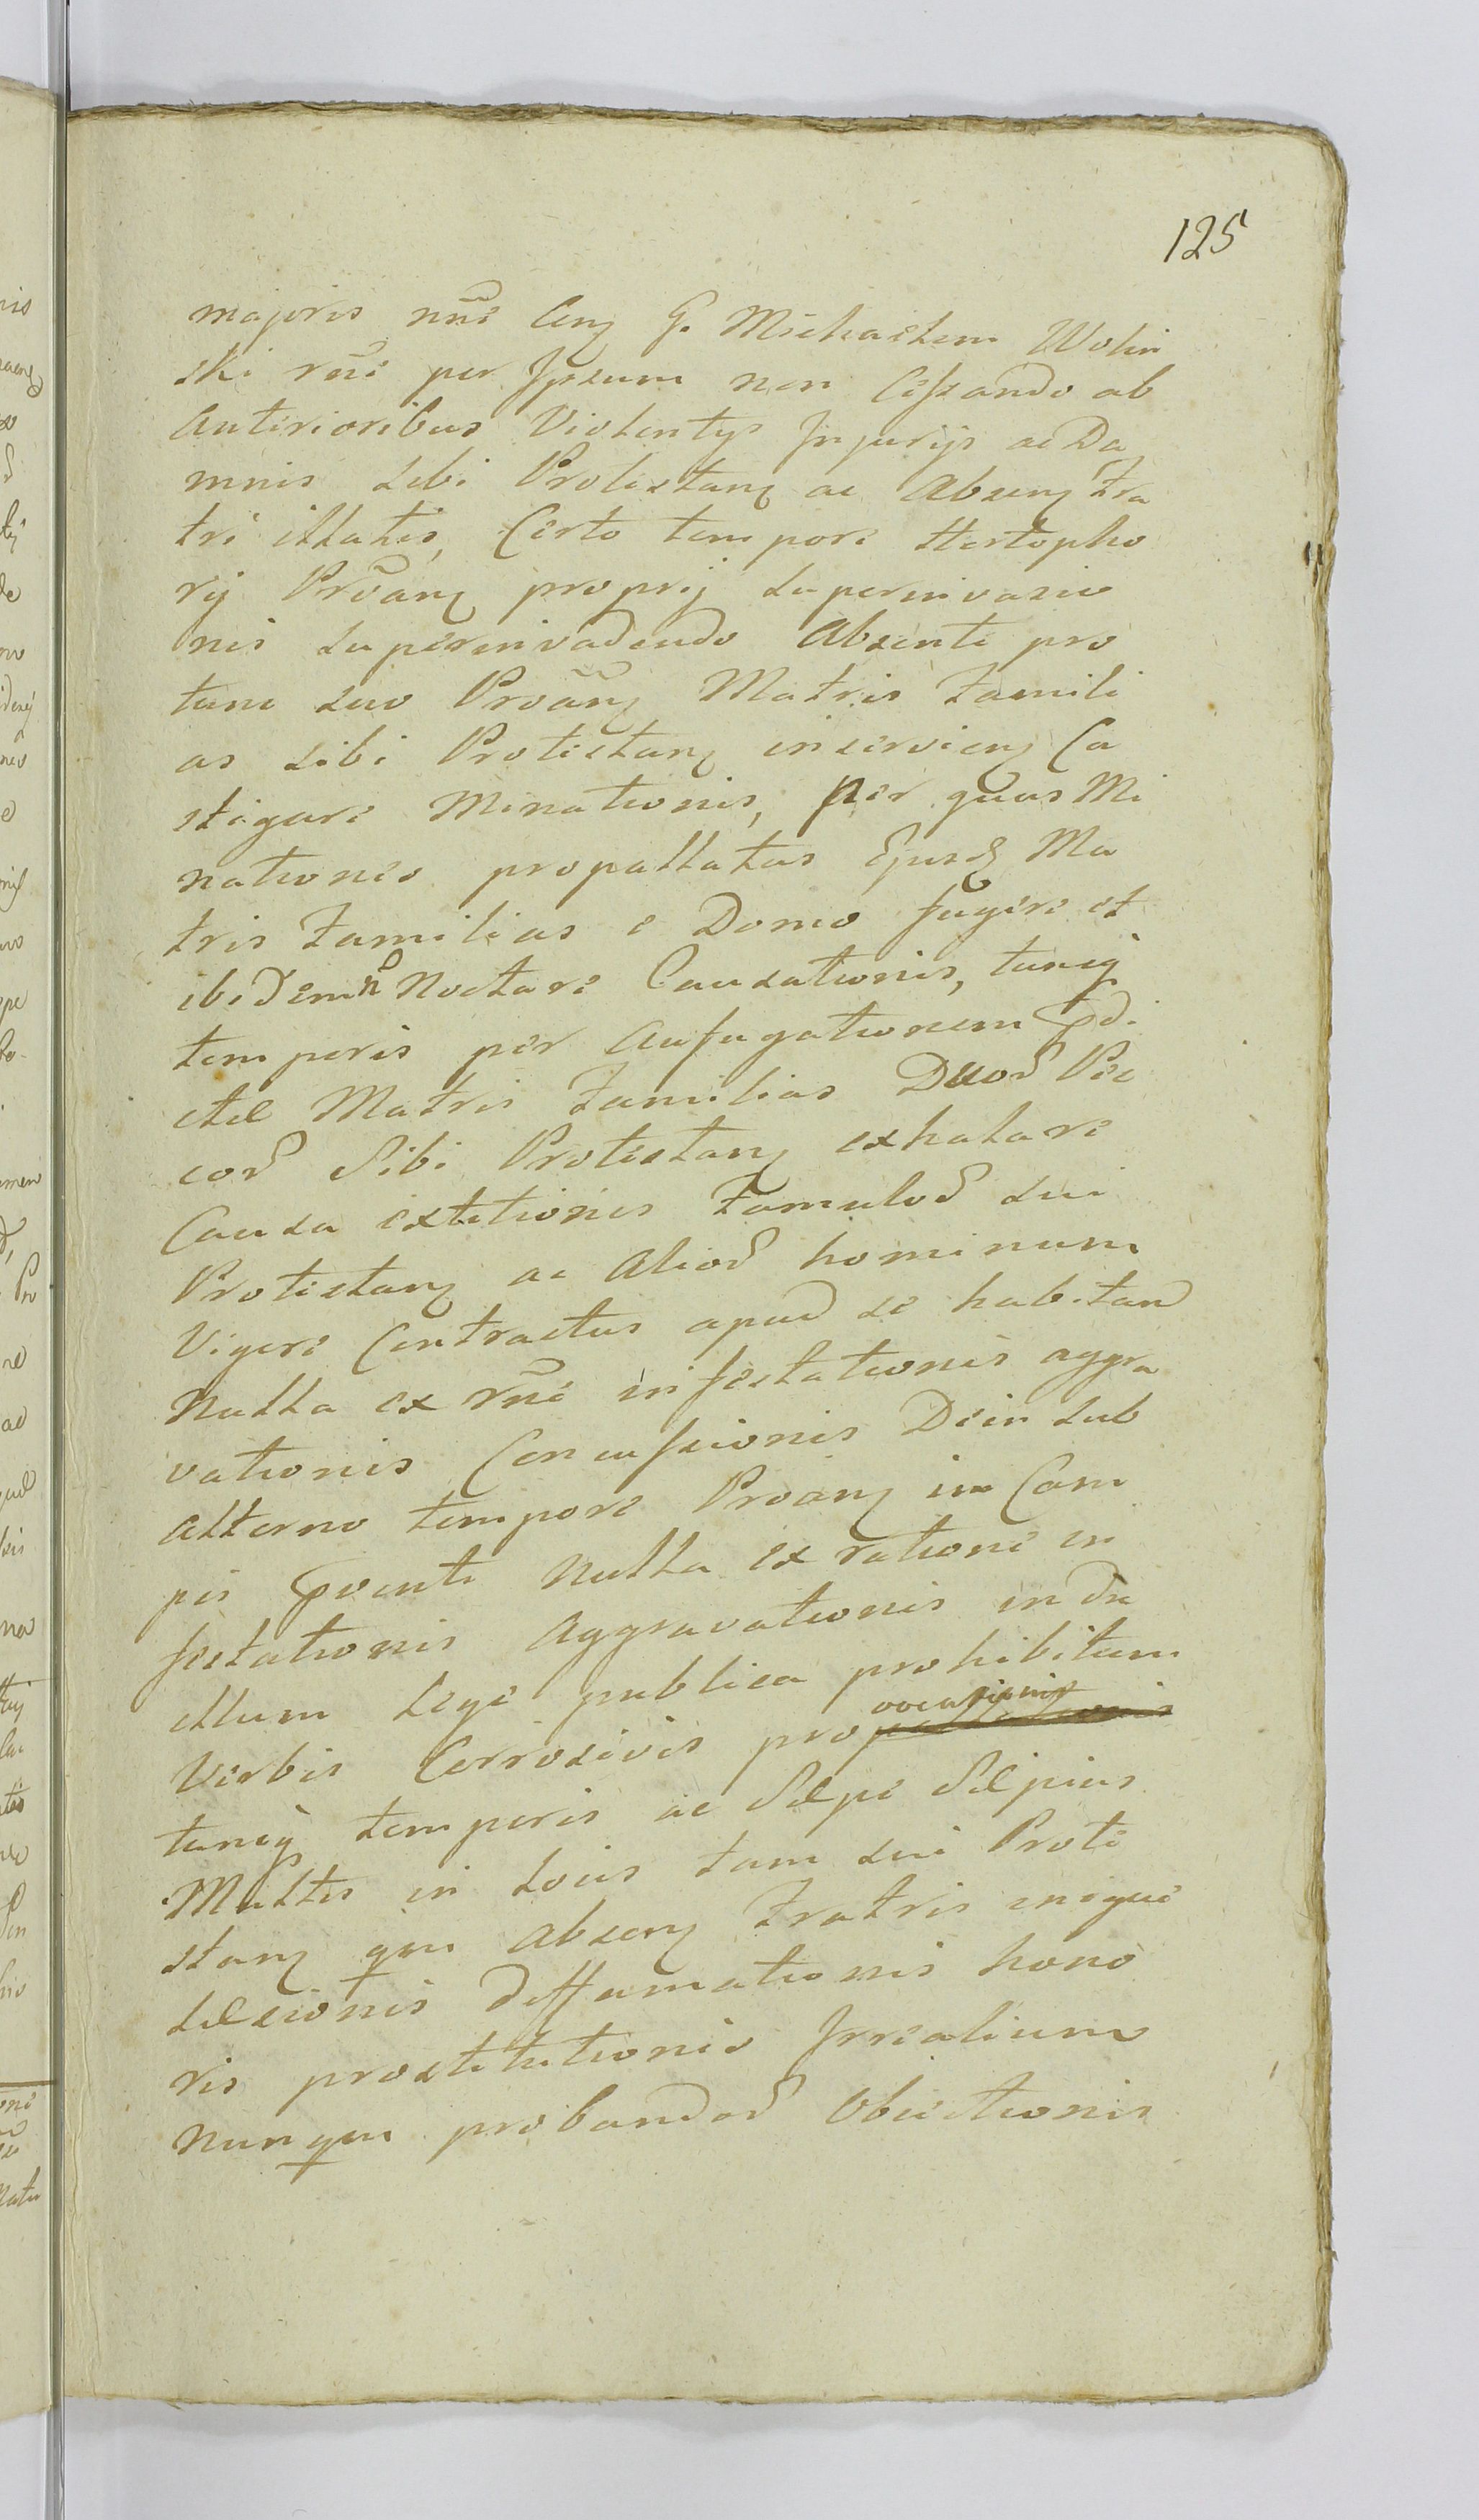 125
majoris nne Cenz G. Michaelem Wolin
ski rñe per Ipsum non Cessando ab
Anterioribus Violentys Injurijs ac Da
mnis sibi Protestanz ac Absenz Fra
tri illatis, Certo tempore
rij Proanz proprij Superinvasio
nis Superinvadendo Absente pro
tunc suo Proãnz Matris Famili
as sibi Protestanz inservienz Ca
stigare Minationis, per quas Mi
nationes propallatas Ejusd Ma
tris Familias e Domo fugere et
ibidem no Noctare Causationis, tuncq
temporis per Aufugationem prdi
ctae Matris Familias Duor Pec
cor Sibi Protestanz exhalare
Causa extitionis Famulor sui
Protestanz ac Alior hominum
Vigore Contractus apud se habitan
Nulla ex rñe infestationis aggra
vationis Concussionis Dein sub
alterno tempore Proanz in Cam
pis pvente Nulla ex ratione in
festationis Aggravationis indu
ellum Lege publica prohibitum
Verbis Corrosivis provocassionis
tuncq temporis ac Saepe Saepius
Multis in Locis tam sui Prote
stanz qm Absenz Fratris inique
Laesionis diffamationis hono
ris prostitutionis Irrealium
nunqm probandor Obiectionis